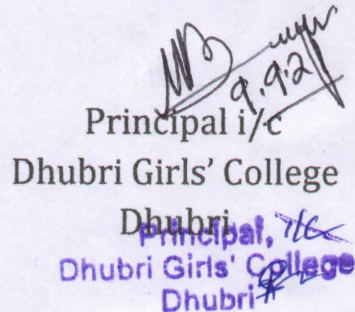 9.9.21
Principal i/c
Dhubri Girls' College
Dhubri
Principal, i/c
Dhubri Girls' College
Dhubri